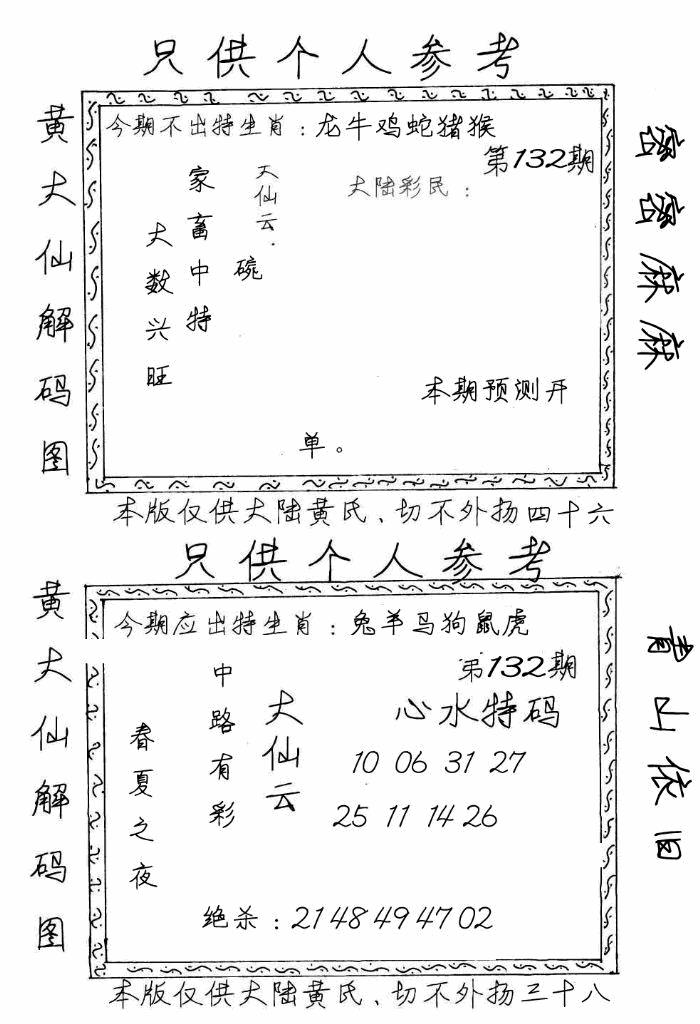 只供个人参考
黄大仙解码图
今期不出特生肖：龙牛鸡蛇猪猴
第132期
大陆彩民：
大仙云.
碗
家畜中特
大数兴旺
密密麻麻
本期预测开
单。
本版仅供大陆黄氏、切不外扬四十六
只供个人参考
黄大仙解码图
今期应出特生肖：兔羊马狗鼠虎
第132期
心水特码
大仙云
中路有彩
春夏之夜
10 06 31 27
25 11 14 26
绝杀：21 48 49 47 02
青山依旧
本版仅供大陆黄氏、切不外扬三十八